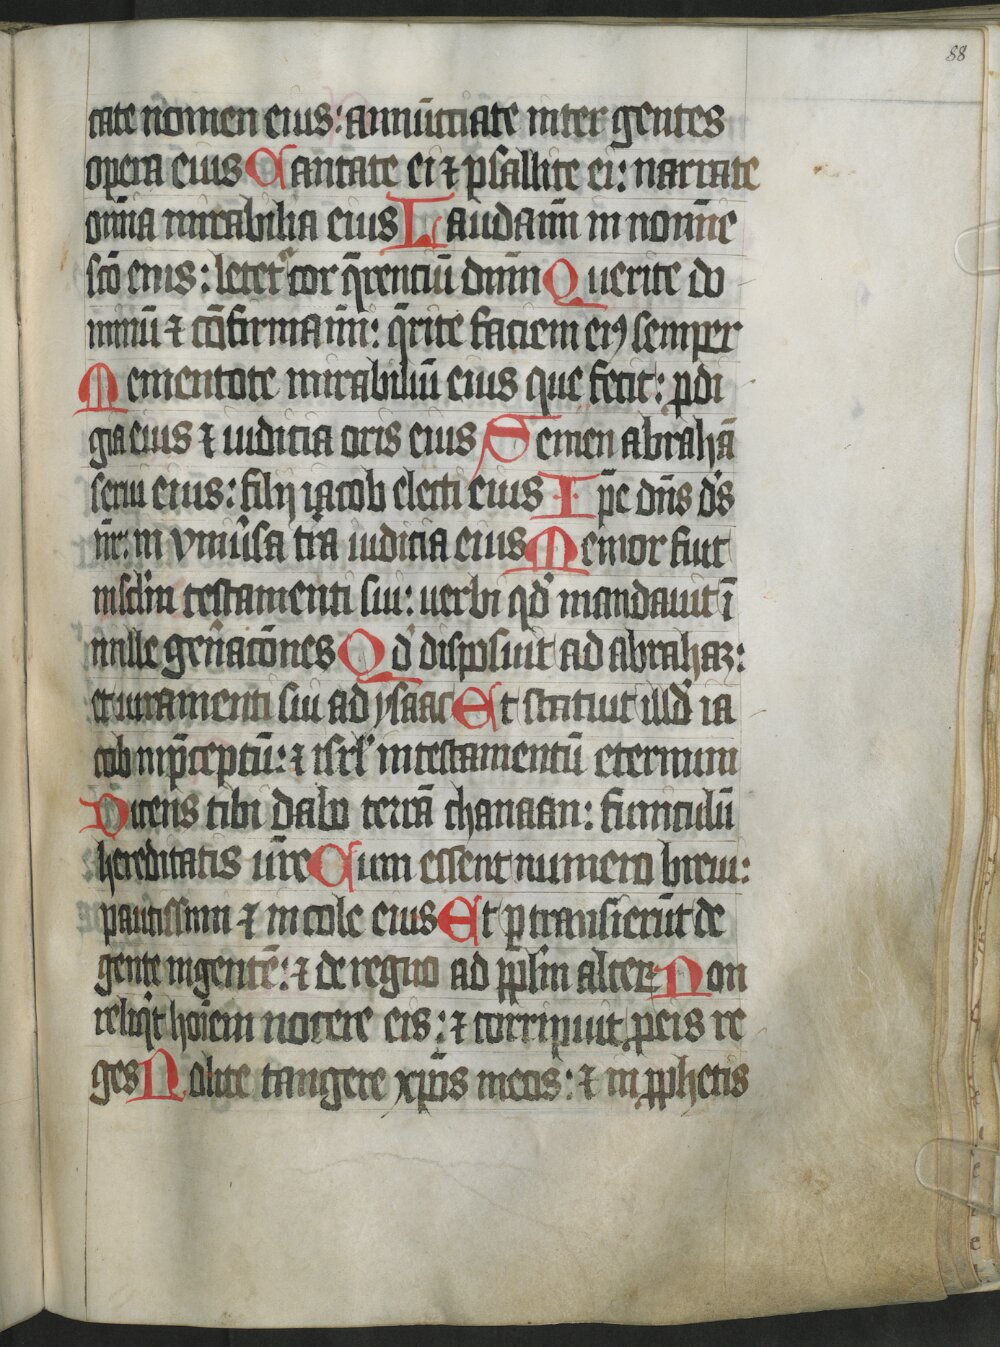 88
cate nomen eius: annūctiate inter gentes
opera eius Cantate ei ⁊ psallite ei: narrate
om̄ia mirabilia eius Laudam̄i in nomīe
sc̄o eius: letet᷑ cor q̄rentiū dn̄m Querite do
minū ⁊ cōfirmam̄i: q̄rite faciem eiꝰ semper
Mementote mirabiliū eius que fecit: ꝓdi
gia eius ⁊ iudicia oris eius Semen abrahā
serui eius: filij iacob electi eius Ip̄e dn̄s ds̄
nr̄: in vniūsa tr̄a iudicia eius Memor fuit
in sclm̄ testamenti sui: uerbi qd̄ mandauit ī
mille gen̄acōnes Qd̄ disposuit ad abrahaꝫ:
et iuramenti sui ad ysaac Et statuit illd̄ ia
cob in p̄ceptū: ⁊ isrl̄ in testamentū eternum
Dicens tibi dabo terrā chanaan: funiculū
hereditatis ūre Cum essent numero breui:
paucissimi ⁊ incole eius Et ꝑtransierūt de
gente in gentē: ⁊ de regno ad pplm̄ alterꝝ Non
reliqͥt hoīem nocere eis: ⁊ corripuit ꝓ eis re
ges Nolite tangere xp̄os meos: ⁊ in ꝓphetis